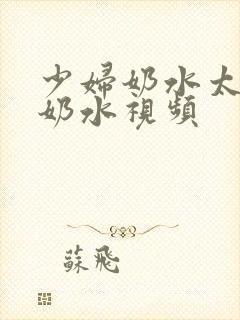 少婦奶水太
奶水視頻
蘇飛